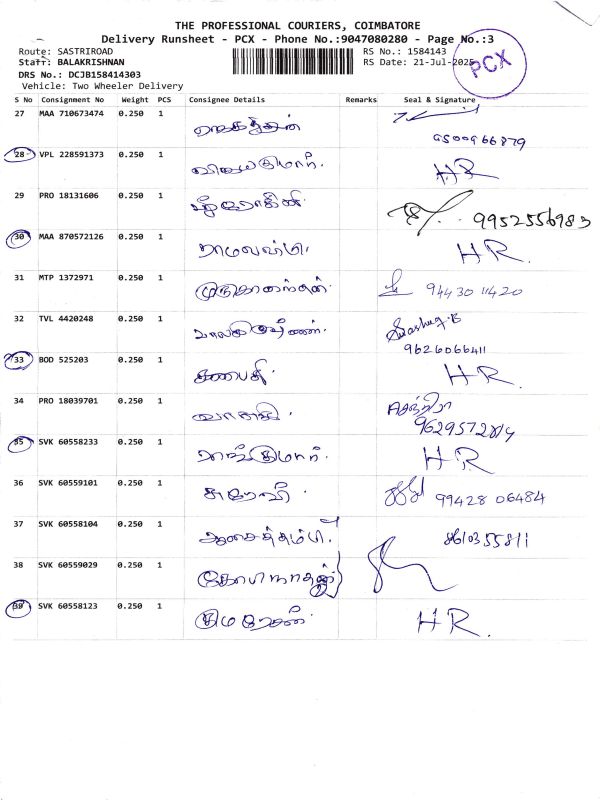 THE PROFESSIONAL COURIERS, COIMBATORE
Delivery Runsheet - PCX - Phone No.:9047080280 - Page No.:3
Route: SASTRIROAD RS No.: 1584143
Staff: BALAKRISHNAN RS Date: 21-Jul-2025
PCX
DRS No.: DCJB158414303
Vehicle: Two Wheeler Delivery
S No Consignment No Weight PCS Consignee Details Remarks Seal & Signature
27 MAA 710673474 0.250 1
9500966879
28 VPL 228591373 0.250 1 விஜயகுமார். HR
29 PRO 18131606 0.250 1 9952556983
30 MAA 870572126 0.250 1 ராமலஷ்மி. HR.
31 MTP 1372971 0.250 1 முருகானந்தன். 94430 11420
32 TVL 4420248 0.250 1 பாலகிருஷ்ணன்.
9626066411
33 BOD 525203 0.250 1 கணபதி. HR
34 PRO 18039701 0.250 1 வாசுகி.
35 SVK 60558233 0.250 1 ராஜ்குமார். HR
36 SVK 60559101 0.250 1 99428 06484
37 SVK 60558104 0.250 1 ஆசைத்தம்பி. 8610355811
38 SVK 60559029 0.250 1 கோபிநாதன்
39 SVK 60558123 0.250 1 HR.